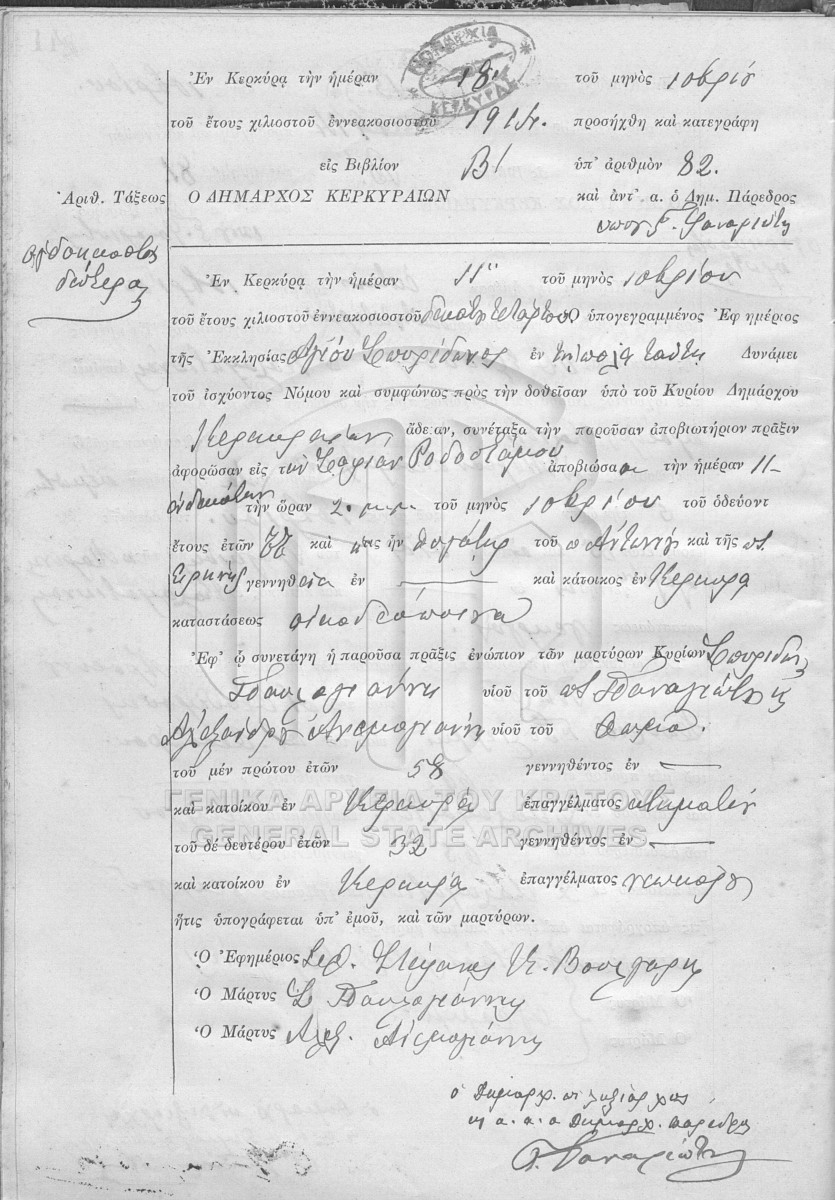 ΝΟΜΑΡΧΙΑ
ΚΕΡΚΥΡΑΣ
Ἐν Κερκύρᾳ τὴν ἡμέραν 18 τοῦ μηνὸς 10βρίου
τοῦ ἔτους χιλιοστοῦ ἐννεακοσιοστοῦ 1914. προσήχθη καὶ κατεγράφη
εἰς Βιβλίον Β' ὑπ' ἀριθμὸν 82.
Ἀριθ. Τάξεως Ο ΔΗΜΑΡΧΟΣ ΚΕΡΚΥΡΑΙΩΝ καὶ ἀντ'. α. ὁ Δημ. Πάρεδρος
ὀγδοηκοστὴ
δευτέρα
Ἐν Κερκύρᾳ τὴν ἡμέραν 11 τοῦ μηνὸς 10βρίου
τοῦ ἔτους χιλιοστοῦ ἐννεακοσιοστοῦ δεκάτου τετάρτου Ὁ ὑπογεγραμμένος Ἐφημέριος
τῆς Ἐκκλησίας Ἁγίου Σπυρίδωνος ἐν τῇ πόλει ταύτῃ Δυνάμει
τοῦ ἰσχύοντος Νόμου καὶ συμφώνως πρὸς τὴν δοθεῖσαν ὑπὸ τοῦ Κυρίου Δημάρχου
Κερκυραίων ἄδειαν, συνέταξα τὴν παροῦσαν ἀποβιωτήριον πρᾶξιν
ἀφορῶσαν εἰς τὴν Σοφίαν Ροδοστάμου ἀποβιώσασα τὴν ἡμέραν 11
ἑνδεκάτην τὴν ὥραν 2 μ.μ. τοῦ μηνὸς 10βρίου τοῦ ὁδεύοντ
ἔτους ἐτῶν 77 καὶ ἥτις ἦν θυγάτηρ τοῦ π Ἀντωνίου καὶ τῆς π.
Εἰρήνης γεννηθεῖσα ἐν — καὶ κάτοικος ἐν Κέρκυρα
καταστάσεως οἰκοδέσποινα
Ἐφ' ᾧ συνετάγη ἡ παροῦσα πρᾶξις ἐνώπιον τῶν μαρτύρων Κυρίων Σπυρίδων
Παυλογιάννη υἱοῦ τοῦ π. Παναγιώτη κ
Ἀλεξάνδρου Ἀνεμογιάννη υἱοῦ τοῦ Θωμᾶ.
τοῦ μέν πρώτου ἐτῶν 58 γεννηθέντος ἐν —
καὶ κατοίκου ἐν Κέρκυρα ἐπαγγέλματος κτηματίου
τοῦ δέ δευτέρου ἐτῶν 32 γεννηθέντος ἐν —
καὶ κατοίκου ἐν Κέρκυρα ἐπαγγέλματος νεωκόρου
ἥτις ὑπογράφεται ὑπ' ἐμοῦ, καὶ τῶν μαρτύρων.
Ὁ Ἐφημέριος Στέφανος Κ. Βούλγαρης
Ὁ Μάρτυς Σ Παυλογιάννης
Ὁ Μάρτυς Αλεξ. Ανεμογιάννης
ΓΕΝΙΚΑ ΑΡΧΕΙΑ ΤΟΥ ΚΡΑΤΟΥΣ
GENERAL STATE ARCHIVES